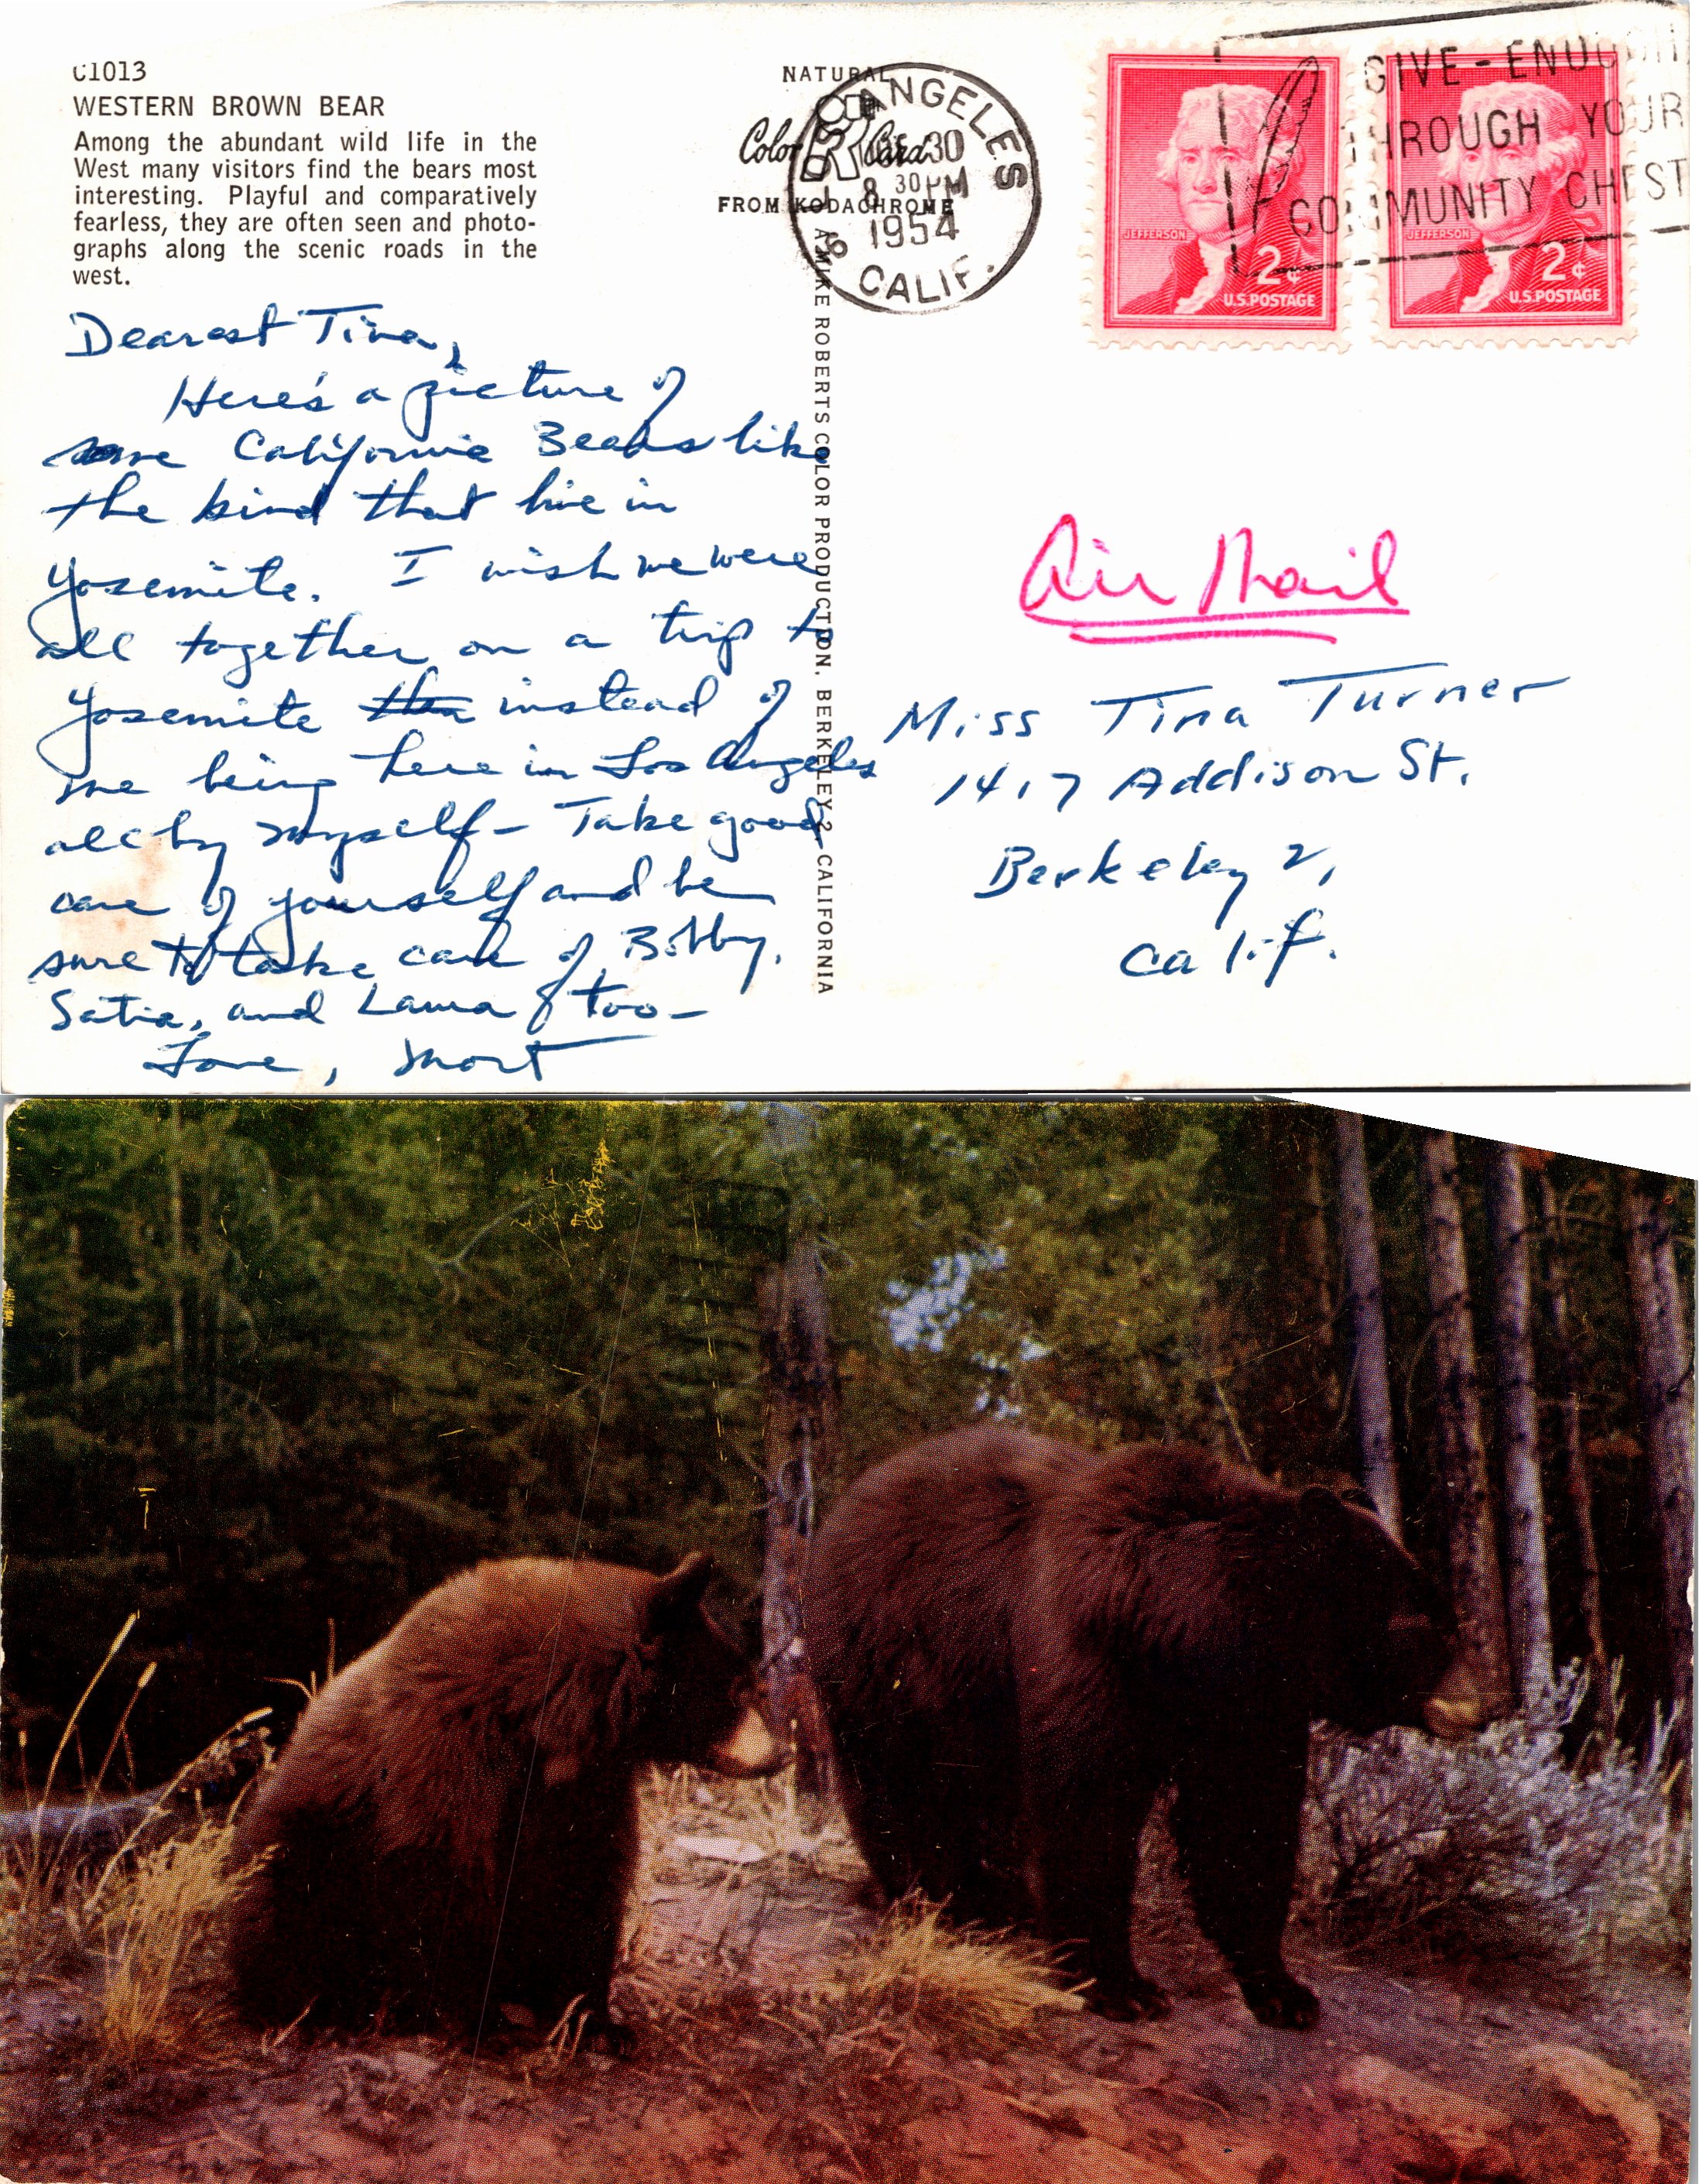 C1013
WESTERN BROWN BEAR
Among the abundant wild life in the
West many visitors find the bears most
interesting. Playful and comparatively
fearless, they are often seen and photo-
graphs along the scenic roads in the
west.
Dearest Tina,
Here's a picture of
some California Bears like
the kind that live in
Yosemite. I wish we were
all together on a trip to
Yosemite instead of
me being here in Los Angeles
all by myself – Take good
care of yourself and be
sure to take care of Bobby,
Satia, and Laura too –
Love, Mort
NATURAL
Color Card
FROM KODACHROME
A MIKE ROBERTS COLOR PRODUCTION, BERKELEY 2, CALIFORNIA
ANGELES
30
8 30 PM
1954
CALIF.
GIVE-ENOUGH
THROUGH YOUR
COMMUNITY CHEST
JEFFERSON
2¢
U.S.POSTAGE
JEFFERSON
2¢
U.S.POSTAGE
Air Mail
Miss Tina Turner
1417 Addison St.
Berkeley 2,
Calif.